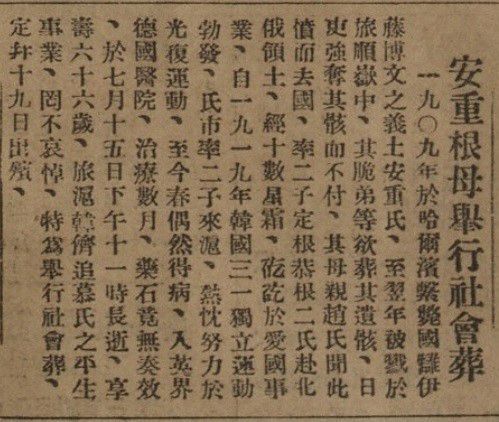 安重根母舉行社會葬
一九〇九年於哈爾濱擊斃國讎伊
藤博文之義士安重氏、至翌年被戮於
旅順獄中、其脆弟等欲葬其遺骸、日
吏強奪其骸而不付、其母親趙氏聞此
憤而去國、率二子定根恭根二氏赴北
俄領土、經十數星霜、矻矻於愛國事
業、自一九一九年韓國三一獨立運動
勃發、氏市率二子來滬、熱忱努力於
光復運動、至今春偶然得病、入英界
德國醫院、治療數月、藥石竟無奏效
、於七月十五日下午十一時長逝、享
壽六十六歲、旅滬韓儕追慕氏之平生
事業、罔不哀悼、特爲舉行社會葬、
定十九日出殯、